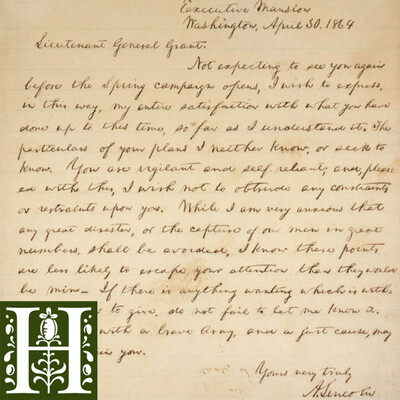 Executive Mansion
Washington, April 30. 1864
Lieutenant General Grant.
Not expecting to see you again
before the Spring campaign opens, I wish to express,
in this way, my entire satisfaction with what you have
done up to this time, so far as I understand it. The
particulars of your plans I neither know, or seek to
know. You are vigilant and self-reliant; and, pleas-
ed with this, I wish not to obtrude any constraints
or restraints upon you. While I am very anxious that
any great disaster, or the capture of our men in great
numbers, shall be avoided, I know these points
are less likely to escape your attention than they would
be mine– If there is anything wanting which is with-
to give, do not fail to let me know it.
with a brave Army, and a just cause, may
you.
Yours very truly
A. Lincoln
H